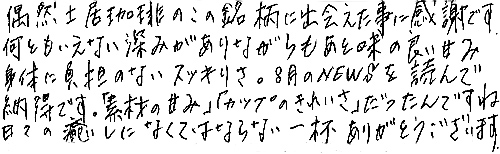 偶然土居珈琲のこの銘柄に出会えた事に感謝です
何ともいえない深みがありながらもあと味の良い甘み
身体に負担のないスッキリさ。8月のNEWSを読んで
納得です。「素材の甘み」「カップのきれいさ」だったんですね
日々の癒しになくてはならない一杯ありがとうございます